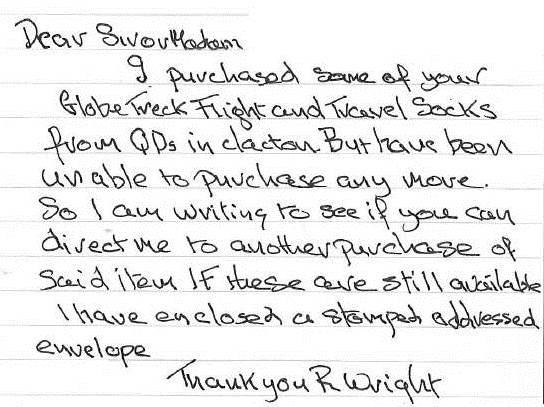 Dear Sir or Madam
I purchased some of your
Globe Treck Flight and Travel Socks
from QDs in clacton. But have been
unable to purchase any more.
So I am writing to see if you can
direct me to another purchase of
said item If these are still available
I have enclosed a stamped addressed
envelope
Thankyou R Wright